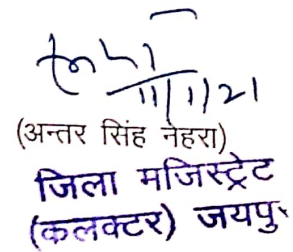 11/1/21
(अन्तर सिंह नेहरा)
जिला मजिस्ट्रेट
(कलक्टर) जयपु